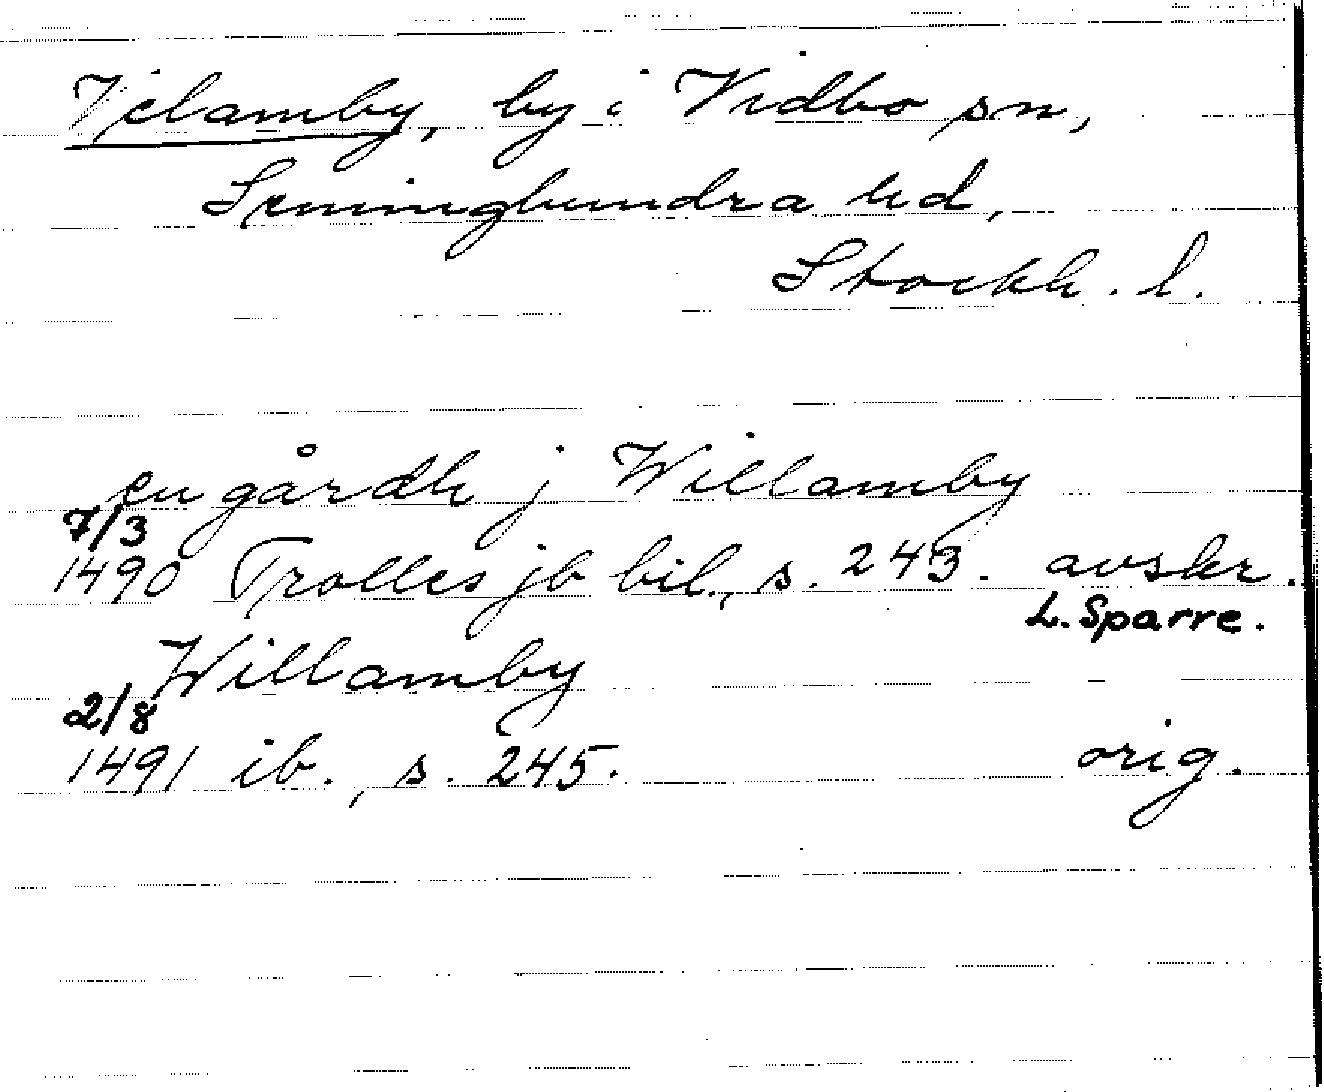 Vilamby, by i Vidbo sn,
Seminghundra hd,
Stockh. l.
en gårdh j Willamby
7/3
1490 Trolles jb bil., s. 243. avskr.
L. Sparre.
Willamby
2/8
1491 ib., s. 245. orig.